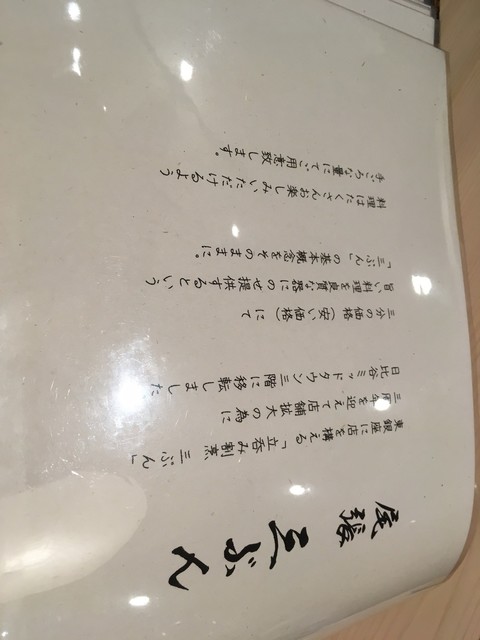 尾張 三ぶん
東銀座に店を構える「立呑み割烹 三ぶん」
三周年を迎えて店舗拡大の為に
日比谷ミッドタウン三階に移転しました
三分の価格(安い価格)にて
旨い料理を良質な器にのせ提供するという
「三ぶん」の基本概念をそのままに。
料理はたくさんお楽しみいただけるよう
手ごろな量にてご用意致します。